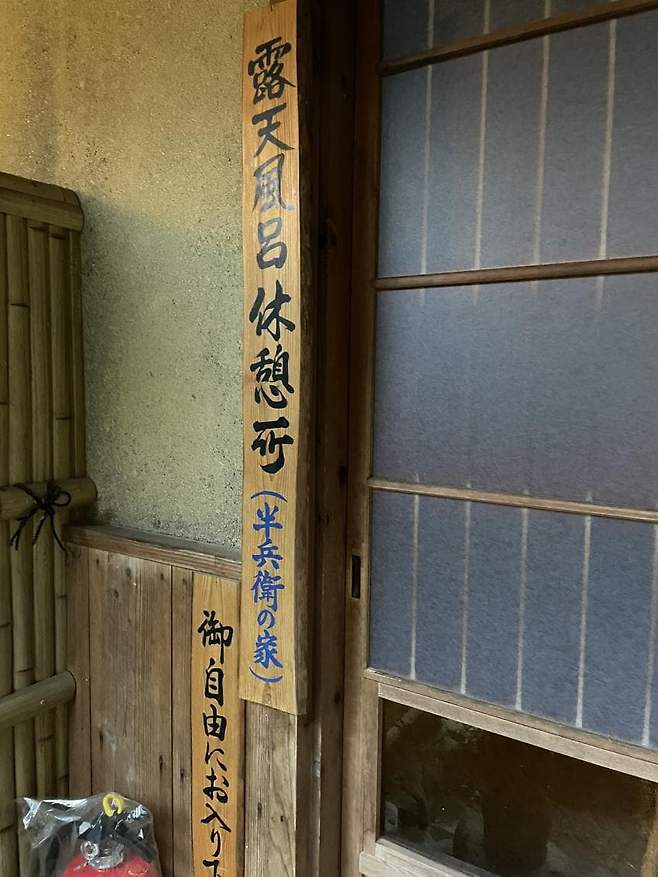 露天風呂休憩所(半兵衛の家)
御自由にお入り下